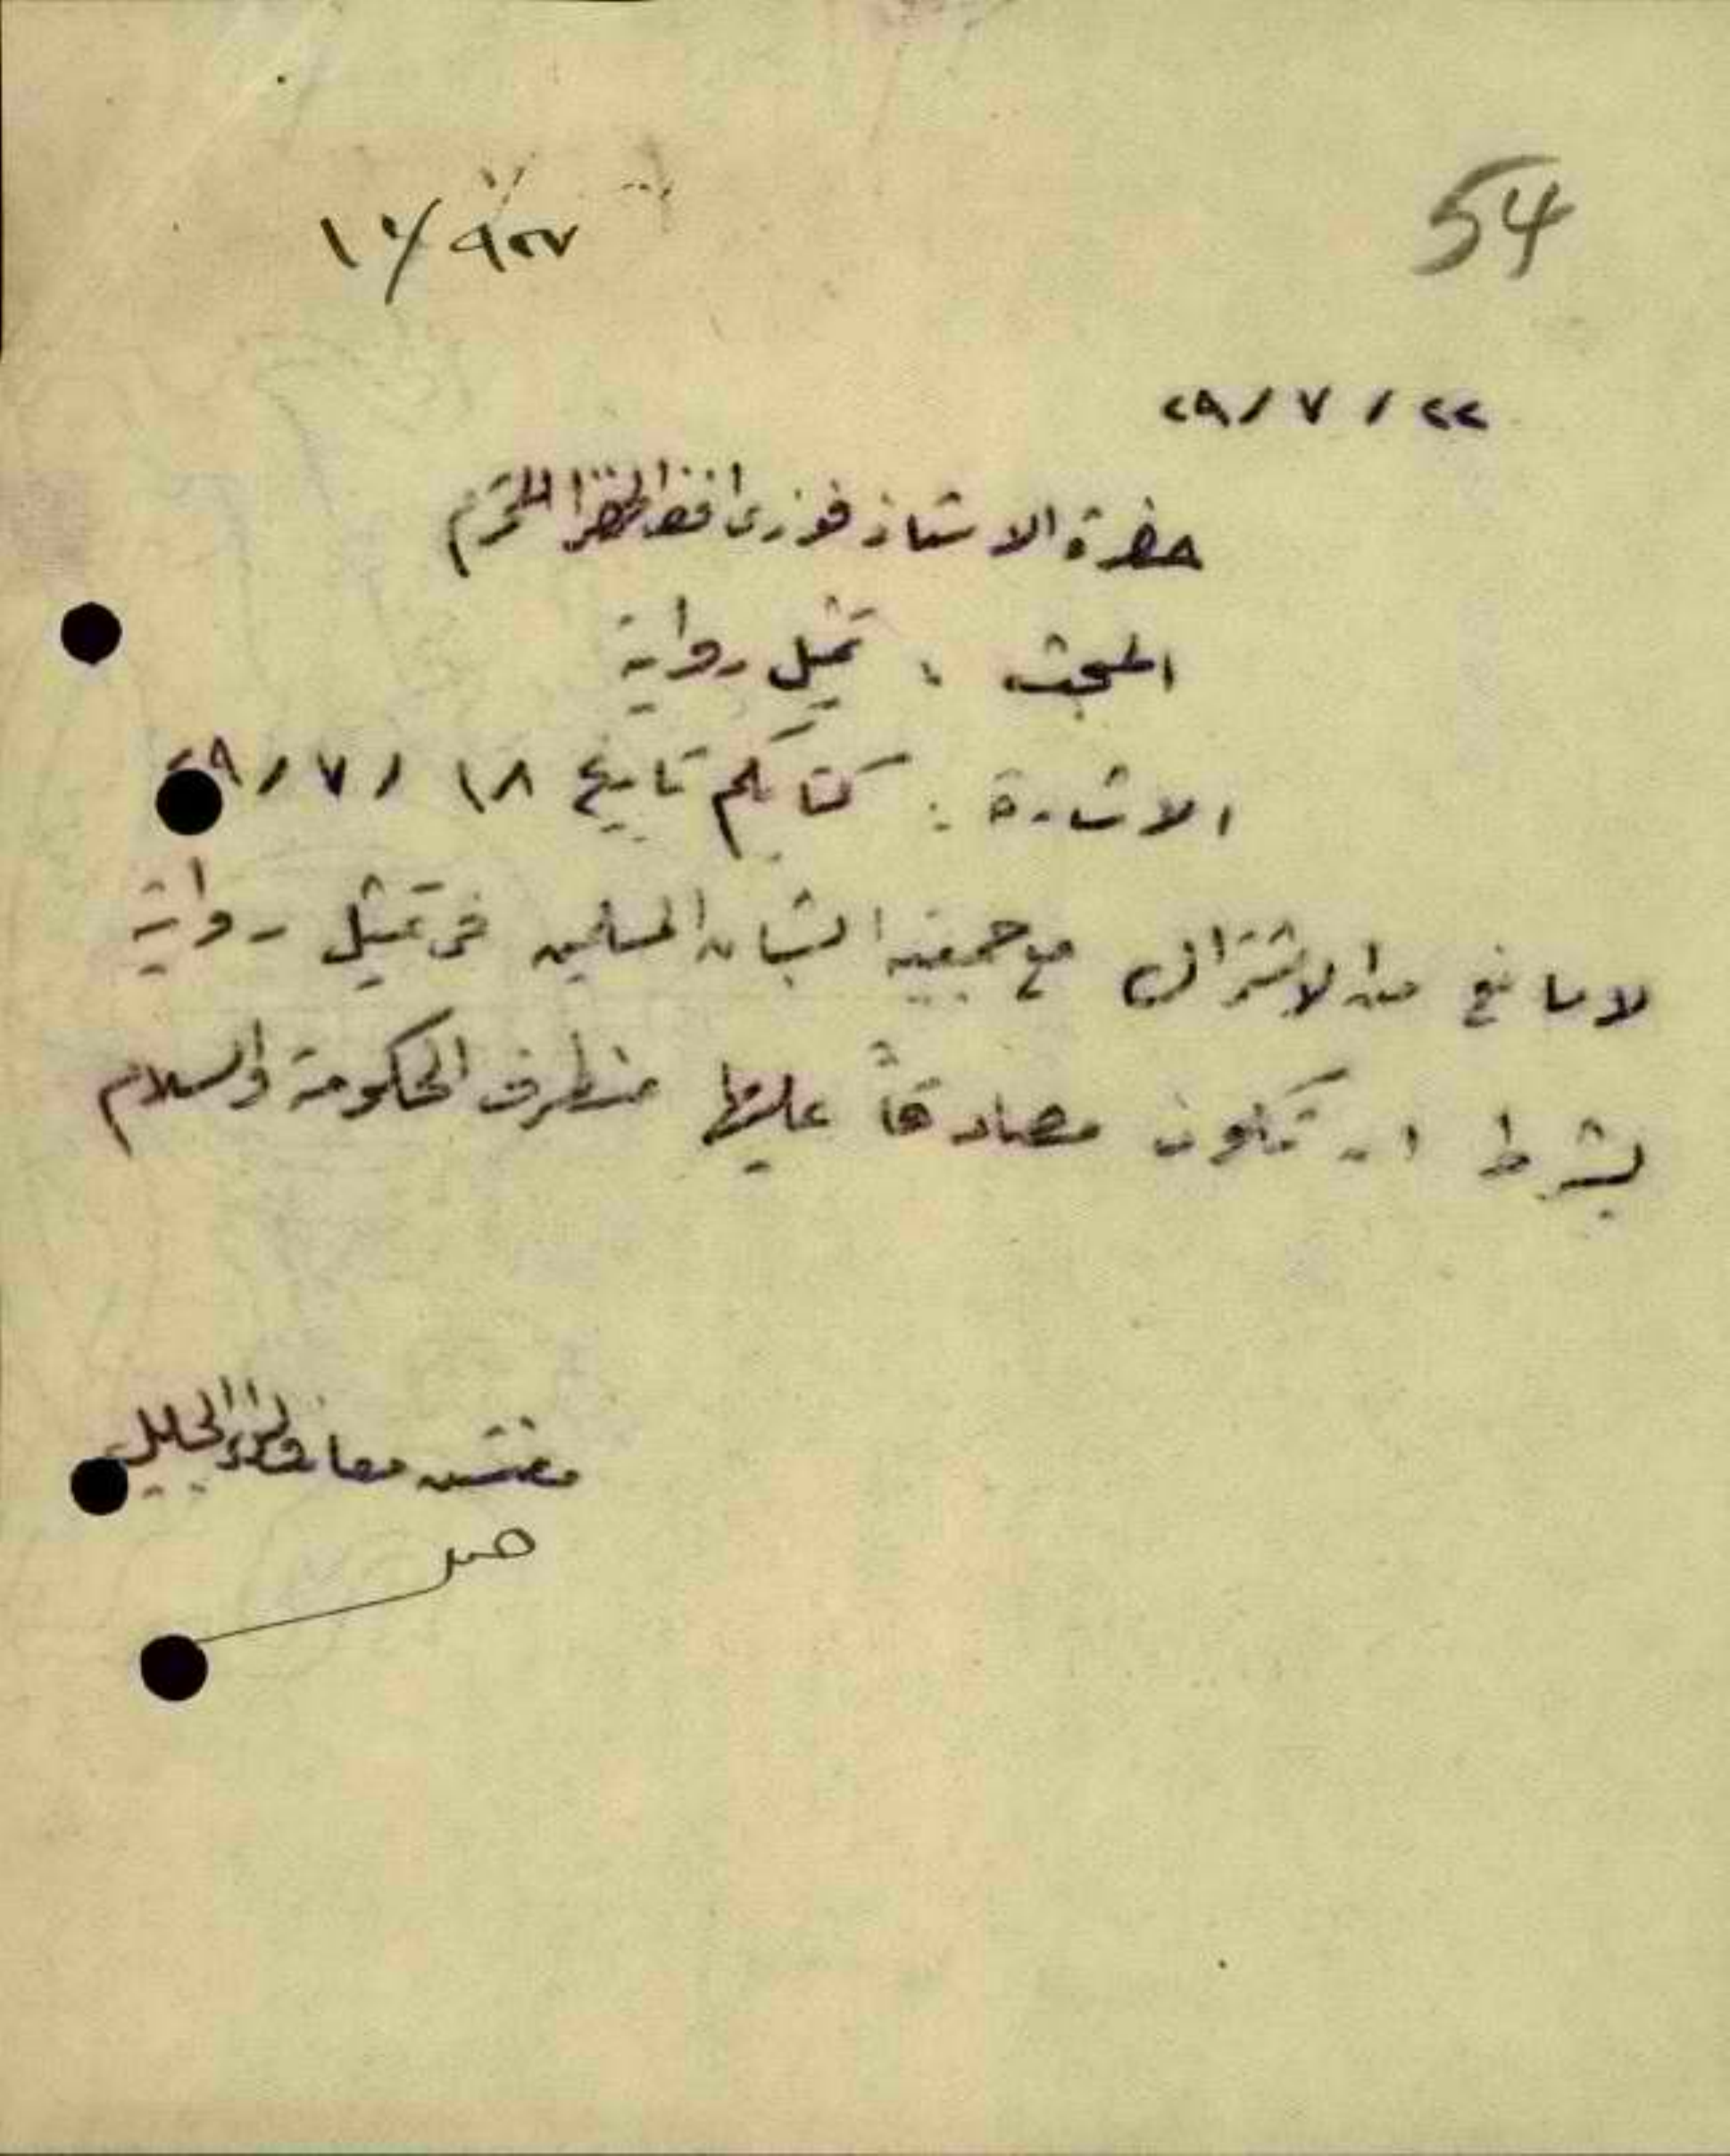 54
١٠/٩٢٧
٢٢ / ٧ / ٢٩
حضرة الاستاذ فوزي افندي المحترم
المبحث : تمثيل رواية
الاشارة : كتابكم تاريخ ١٨ / ٧ / ٢٩
لا مانع من الاشتراك مع جمعية الشبان المسلمين في تمثيل رواية
بشرط ان تكون مصادقاً عليها من طرف الحكومة والسلام
مفتش معارف لواء الجليل